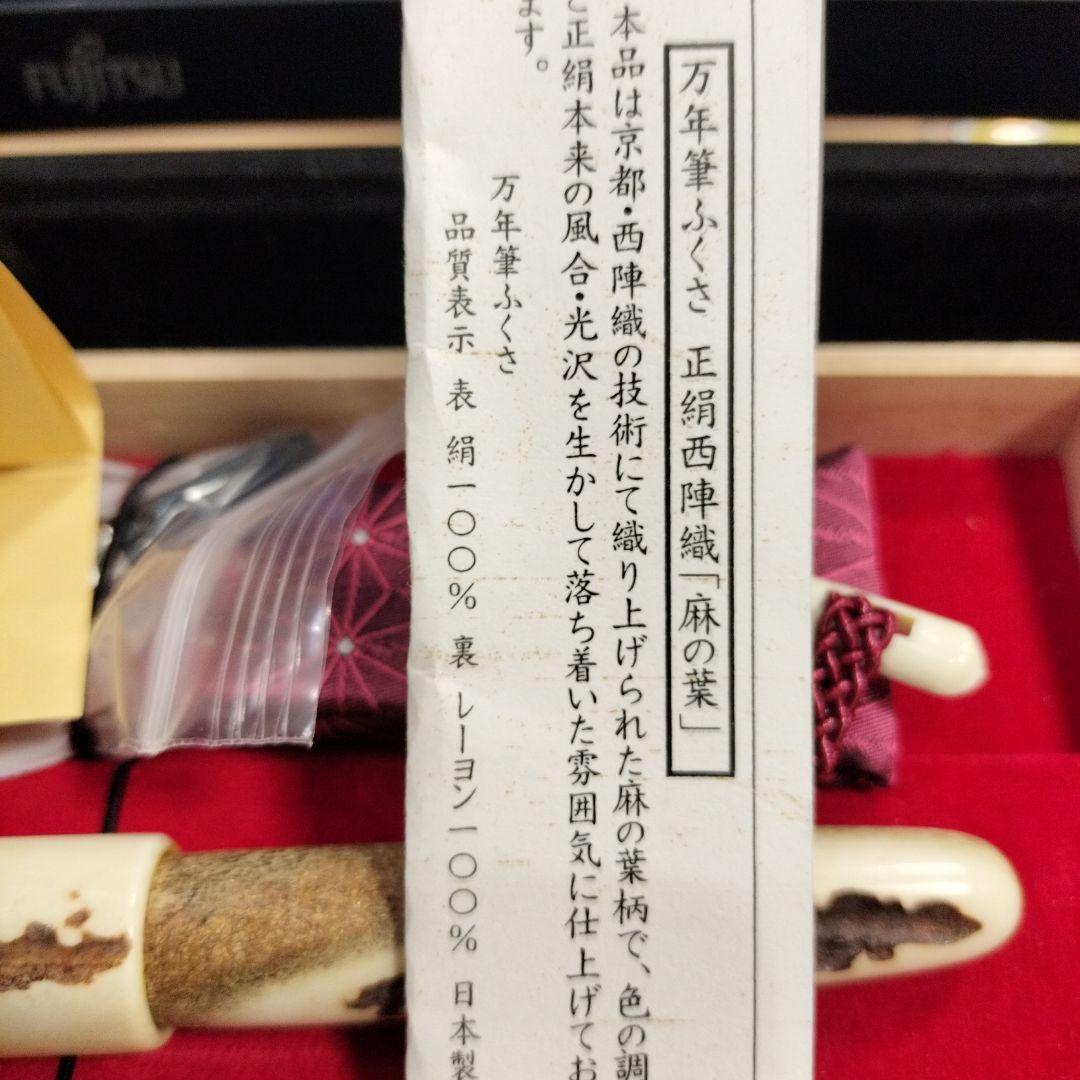 FUJITSU
万年筆ふくさ 正絹西陣織「麻の葉」
本品は京都・西陣織の技術にて織り上げられた麻の葉柄で、色の調
と正絹本来の風合・光沢を生かして落ち着いた雰囲気に仕上げてお
ます。
万年筆ふくさ
品質表示 表 絹一〇〇% 裏 レーヨン一〇〇% 日本製